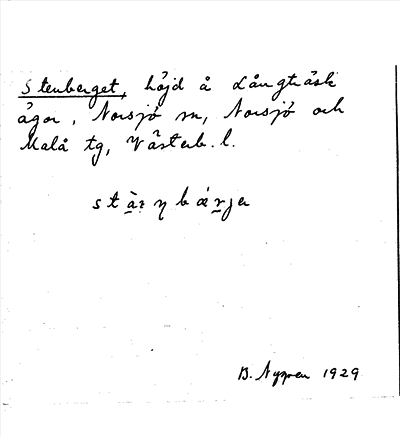 Stenberget, höjd å Långträsk
ägor, Norsjö sn, Norsjö och
Malå tg, Västerb. l.
B. Nygren 1929